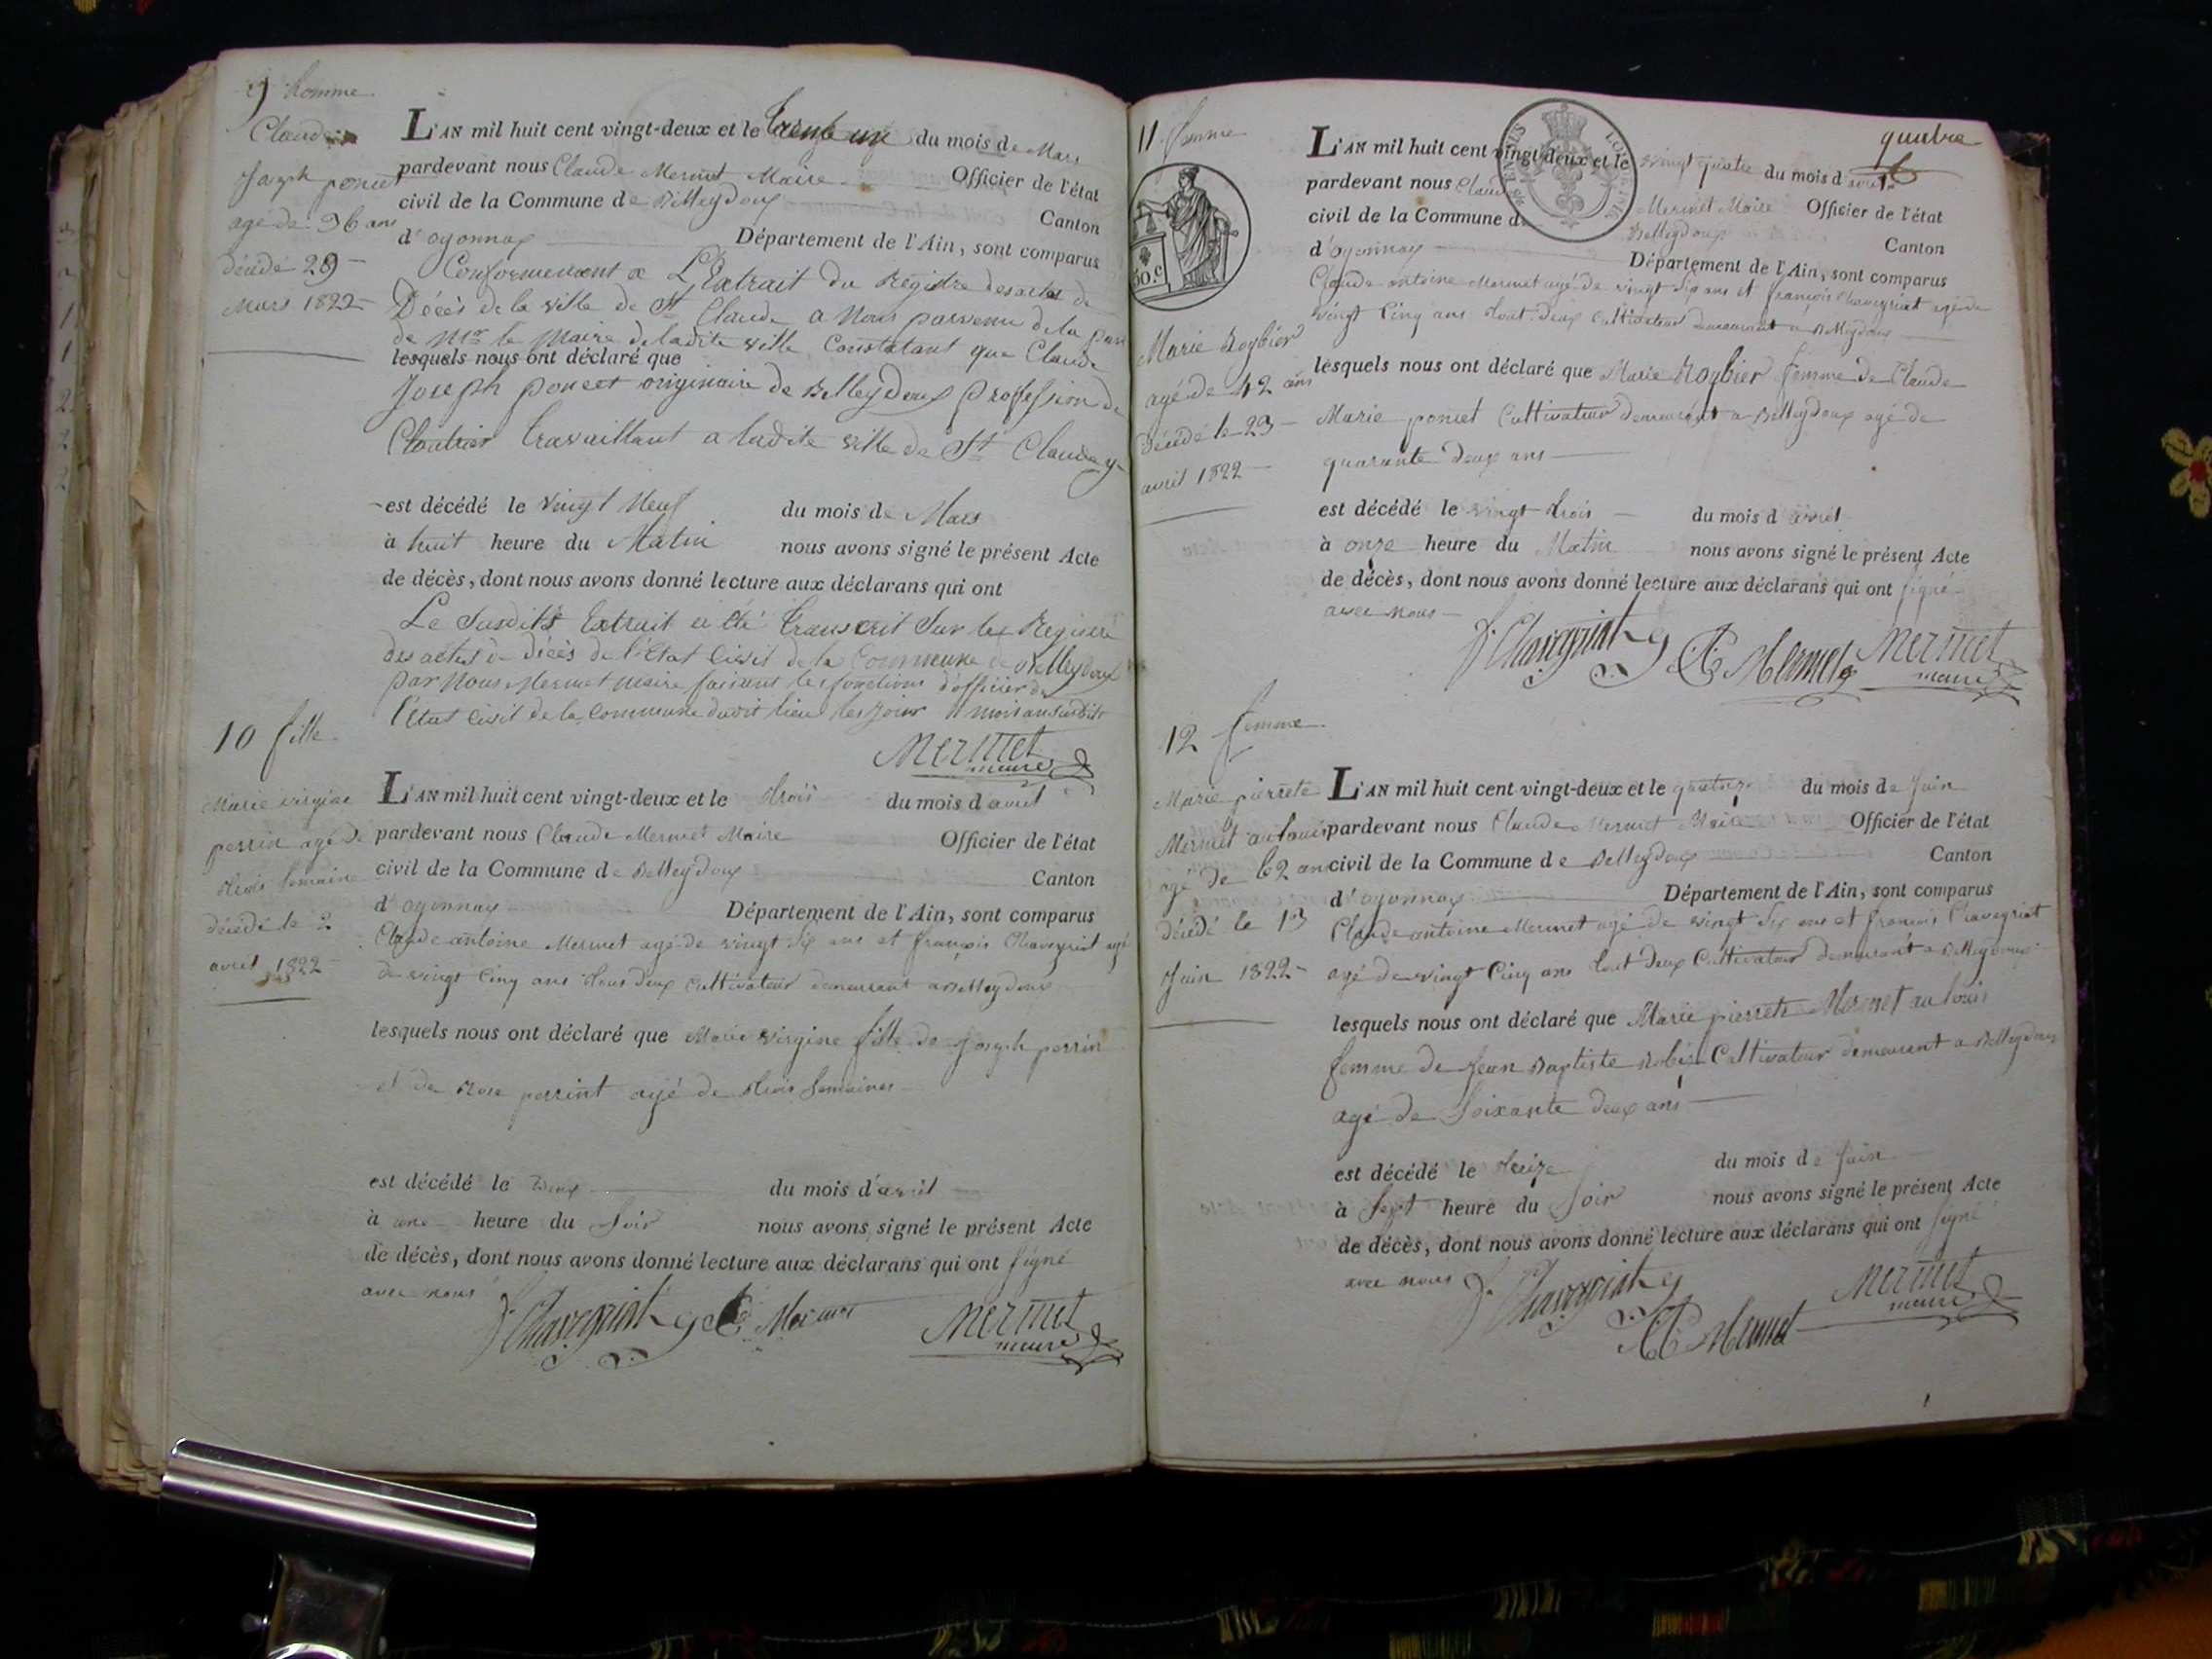 9 homme
Claude
Joseph poncet
agé de 36 ans
décédé 29
Mars 1822
L'AN mil huit cent vingt-deux et le trente un du mois de Mars
pardevant nous Claude Mermet Maire Officier de l'état
civil de la Commune de Belleydoux Canton
d'oyonnax Département de l'Ain, sont comparus
Conformement a L'Extrait du Registre des actes de
Décès de la ville de St Claude a Nous parvenu de la part
de Mr le Maire de ladite ville Constatant que Claude
lesquels nous ont déclaré que
Joseph poncet originaire de Belleydoux profession de
Cloutier travaillant a ladite ville de St Claude y
est décédé le vingt Neuf du mois de Mars
à huit heure du Matin nous avons signé le présent Acte
de décès, dont nous avons donné lecture aux déclarans qui ont
Le Susdits Extrait a été transcrit Sur les Registre
des actes de décès de l'état Civil de la Commune de Belleydoux
par Nous Mermet Maire faisant les fonctions d'officier de
l'état civil de la Commune dudit lieu les jour mois an susdits
Mermet
maire
10 fille
Marie virgine
perrin agé de
trois semaine
décédé le 2
avril 1822
L'AN mil huit cent vingt-deux et le trois du mois d'avril
pardevant nous Claude Mermet Maire Officier de l'état
civil de la Commune de Belleydoux Canton
d'oyonnax Département de l'Ain, sont comparus
Claude antoine Mermet agé de vingt six ans et françois Chavegriat agé
de vingt Cinq ans tous deux cultivateur demeurant a Belleydoux
lesquels nous ont déclaré que Marie virgine fille de Joseph perrin
et de Rose perrint agé de trois semaines
est décédé le deux du mois d'avril
à une heure du Soir nous avons signé le présent Acte
de décès, dont nous avons donné lecture aux déclarans qui ont signé
avec nous
f. Chavegriat C A Mermet Mermet
maire
11 femme
50.c
Marie Roybier
agé de 42 ans
décédé le 23
avril 1822
quatre
L'AN mil huit cent vingt-deux et le vingt quatre du mois d'avril
pardevant nous Claude Mermet Maire Officier de l'état
civil de la Commune de Belleydoux Canton
d'oyonnax Département de l'Ain, sont comparus
Claude antoine Mermet agé de vingt six ans et françois Chavegriat agé de
vingt Cinq ans tout deux Cultivateur demeurant a Belleydoux
lesquels nous ont déclaré que Marie Roybier femme de Claude
Marie poncet Cultivateur demeurant a Belleydoux agé de
quarante deux ans
est décédé le vingt trois du mois d'avril
à onze heure du Matin nous avons signé le présent Acte
de décès, dont nous avons donné lecture aux déclarans qui ont signé
avec nous
f. Chavegriat C A Mermet Mermet
maire
12 femme
Marie pierrete
Mermet au louis
agé de 62 ans
décédé le 13
Juin 1822
L'AN mil huit cent vingt-deux et le quatorze du mois de Juin
pardevant nous Claude Mermet Maire Officier de l'état
civil de la Commune de Belleydoux Canton
d'oyonnax Département de l'Ain, sont comparus
Claude antoine Mermet agé de vingt six ans et francois Chavegriat
agé de vingt Cinq ans tout deux Cultivateur demeurant a Belleydoux
lesquels nous ont déclaré que Marie pierrete Mermet au louis
femme de Jean Baptiste Cultivateur demeurant a Belleydoux
agé de Soixante deux ans
est décédé le treize du mois de Juin
à Sept heure du Soir nous avons signé le présent Acte
de décès, dont nous avons donné lecture aux déclarans qui ont signé
avec nous f. Chavegriat Mermet
maire
C A Mermet